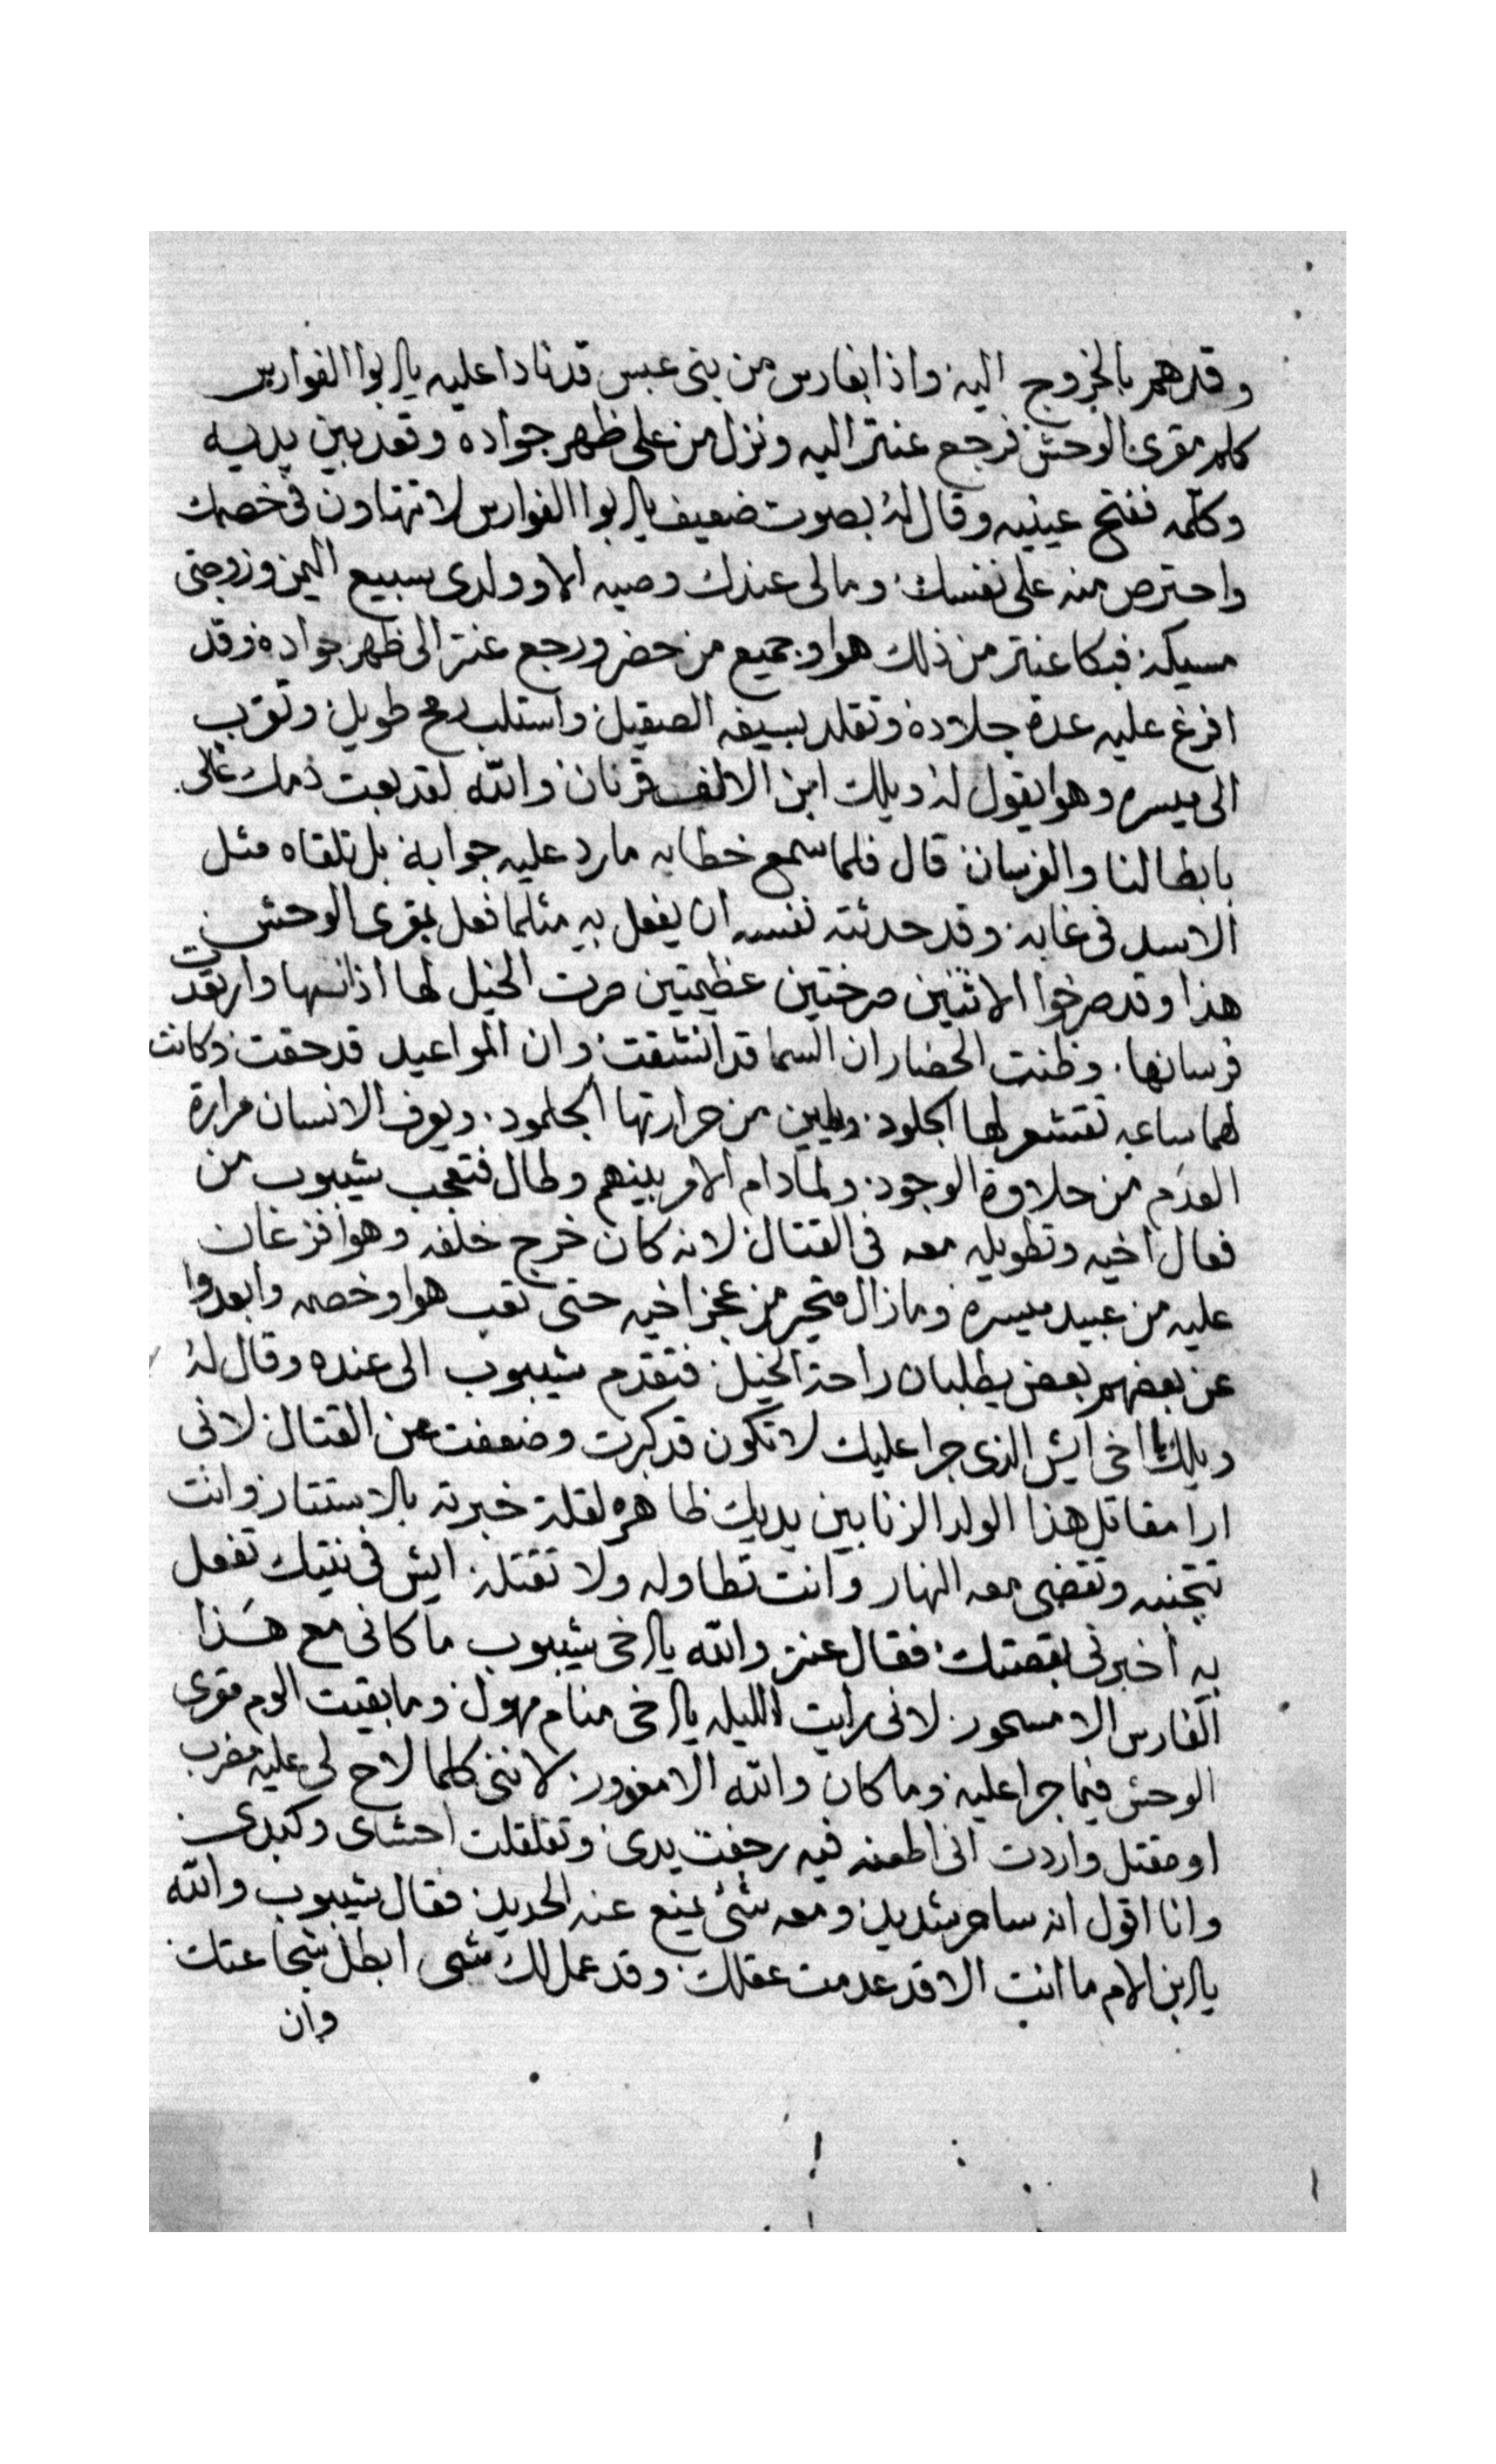 وقد هم بالخروج اليه واذا بفارس من بنى عبس قد نادا عليه يا ابوا الفوارس
كلم مقرى الوحش فرجع عنتر اليه ونزل من على ظهر جواده وقعد بين يديه
وكلمه ففتح عينيه وقال له بصوت ضعيف يا ابوا الفوارس لا تتهاون فى خصمك
واحترص منه على نفسك وما لى عندك وصيه الا و ولدى سبيع اليمن وزوجتى
مسيكه فبكا عنتر من ذلك هوا وجميع من حضر ورجع عنتر الى ظهر جواده وقد
افرغ عليه عدة جلاده وتقلد بسيفه الصقيل واستلب رمح طويل وتقرب
الى ميسره وهوا يقول له ويلك ابن الالف قرنان والله لقد بعت دمك غالى
بابطالنا والفرسان قال فلما سمع خطابه ما رد عليه جوابه بل تلقاه مثل
الاسد فى غابه وقد حدثته نفسه ان يفعل به مثلما فعل بمقرى الوحش
هذا وقد صرخوا الاثنين صرختين عظيمتين صرت الخيل لها اذانها وارتعدت
فرسانها وظنت الحضار ان السما قد انشقت وان المواعيد قد حقت وكانت
لهما ساعه تقشعر لها الجلود ويلين من حرارتها الجلمود ويعرف الانسان مرارة
العدم من حلاوة الوجود ولما دام الامر بينهم وطال فتعجب شيبوب من
فعال اخيه وتطويله معه فى القتال لانه كان خرج خلفه وهوا فزعان
عليه من عبيد ميسره وما زال متحير من عجز اخيه حتى تعب هوا وخصمه وابعدوا
عن بعضهم بعض يطلبان راحة الخيل فتقدم شيبوب الى عنده وقال له
ويلك يا اخى ايش الذى جرا عليك لا تكون قد كبرت وضعفت عن القتال لانى
ارا مقاتل هذا الولد الزنا بين يديك ظاهره لقلة خبرته بالاستتار وانت
تتجنبه وتقضى معه النهار وانت تطاوله ولا تقتله ايش فى نيتك تفعل
به اخبرنى بقصتك فقال عنتر والله يا اخى شيبوب ما كانى مع هذا
الفارس الا مسحور لانى رايت الليله يا اخى منام مهول وما بقيت الوم مقرى
الوحش فيما جرا عليه وما كان والله الا معذور لاننى كلما لاح لى عليه مضرب
او مقتل واردت انى اطعنه فيه رجفت يدى وتقلقلت احشاى وكبدى
وانا اقول انه ساحر شديد ومعه شئ يمنع عنه الحديد فقال شيبوب والله
يا ابن الام ما انت الا قد عدمت عقلك وقد عمل لك شى ابطل شجاعتك
وان